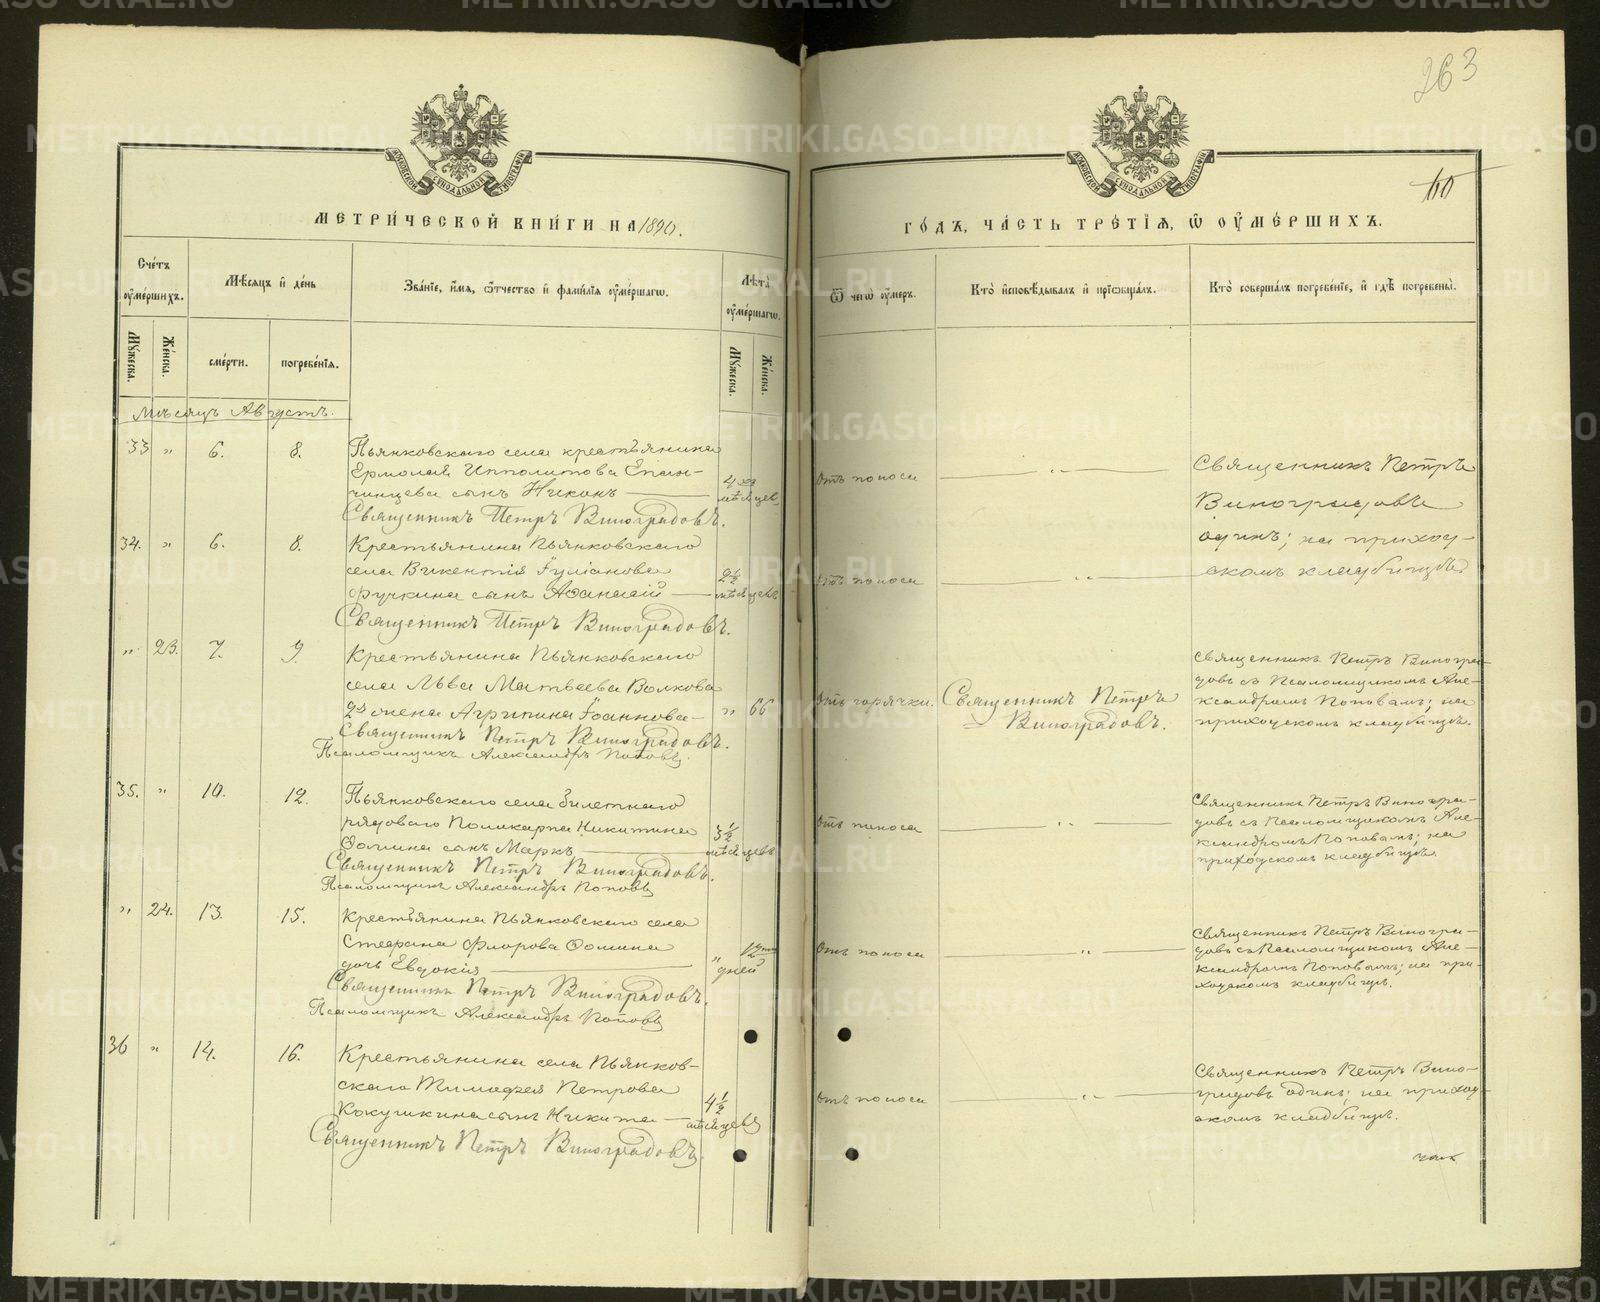 263
110
МЕТРИ́ЧЕСКОЙ КНИ́ГИ НА 1890.
ГО́ДЪ, ЧА́СТЬ ТРЕ́ТІѦ, Ѽ ОУ҆МЕ́РШИХЪ.
Сче́тъ оу҆ме́ршихъ.
Мѣ́сяцъ и҆ де́нь
Зва́ніе, и҆́мя, ѻ҆́тчество и҆ фами́лія оу҆ме́ршагѡ.
Лѣ́та оу҆ме́ршагѡ.
Ѿ чегѡ̀ оу҆́меръ.
Кто̀ и҆сповѣ́дывалъ и҆ пріѡбща́лъ.
Кто̀ соверша́лъ погребе́ніе, и҆ гдѣ̀ погребены̀.
Мꙋ́жеска.
Же́нска.
сме́рти.
погребе́нія.
Мꙋ́жеска.
Же́нска.
Мѣсяцъ Августъ.
33 „ 6. 8. Пьянковскаго села крестьянина
Ермолая Ипполитова Епан-
чинцева сынъ Никонъ — 4хъ мѣсяцев
Священникъ Петръ Виноградовъ.
Отъ поноса — „ —
Священникъ Петръ
Виноградовъ
одинъ; на приход-
скомъ кладбищѣ.
34. „ 6. 8. Крестьянина Пьянковскаго
села Викентія Іуліанова
Фучкина сынъ Аѳанасій — 2½ мѣсяцевъ
Священникъ Петръ Виноградовъ.
Отъ поноса — „ —
„ 23. 7. 9. Крестьянина Пьянковскаго
села Льва Матвѣева Волкова
2я жена Агрипина Іоаннова — „ 66
Священникъ Петръ Виноградовъ.
Псаломщикъ Александръ Поповъ.
Отъ горячки.
Священникъ Петръ
Виноградовъ.
Священникъ Петръ Виногра-
довъ съ Псаломщикомъ Але-
ксандромъ Поповымъ; на
приходскомъ кладбищѣ.
35. „ 10. 12. Пьянковскаго села билетнаго
рядоваго Поликарпа Никитина
Ѳомина сынъ Маркъ — 3½ мѣсяцевъ
Священникъ Петръ Виноградовъ.
Псаломщикъ Александръ Поповъ
Отъ поноса — „ —
Священникъ Петръ Виногра-
довъ съ Псаломщикомъ Але-
ксандромъ Поповымъ; на
приходскомъ кладбищѣ.
„ 24. 13. 15. Крестьянина Пьянковскаго села
Стефана Флорова Ѳомина
дочь Евдокія — „ 12ти дней
Священникъ Петръ Виноградовъ.
Псаломщикъ Александръ Поповъ
Отъ поноса — „ —
Священникъ Петръ Виногра-
довъ съ Псаломщикомъ Але-
ксандромъ Поповымъ; на при-
ходскомъ кладбищѣ.
36 „ 14. 16. Крестьянина села Пьянков-
скаго Тимоѳея Петрова
Кокушкина сынъ Никита — 4½ мѣсяцевъ
Священникъ Петръ Виноградовъ.
Отъ поноса — „ —
Священникъ Петръ Вино-
градовъ одинъ; на приход-
скомъ кладбищѣ.
METRIKI.GASO-URAL.RU